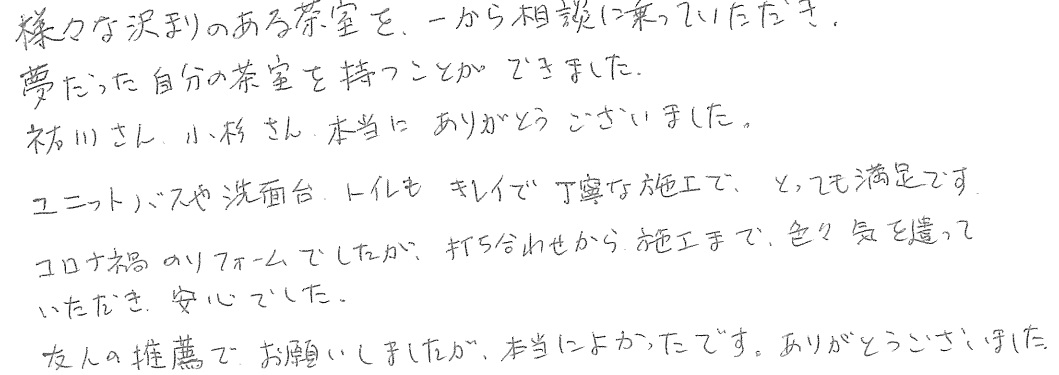 様々な決まりのある茶室を、一から相談に乗っていただき、
夢だった自分の茶室を持つことができました。
祐川さん、小杉さん、本当に ありがとう ございました。
ユニットバスや洗面台、トイレも キレイで 丁寧な施工で、とっても満足です。
コロナ禍のリフォームでしたが、打ち合わせから施工まで、色々 気を遣って
いただき、安心でした。
友人の推薦で お願いしましたが、本当によかったです。ありがとうございました